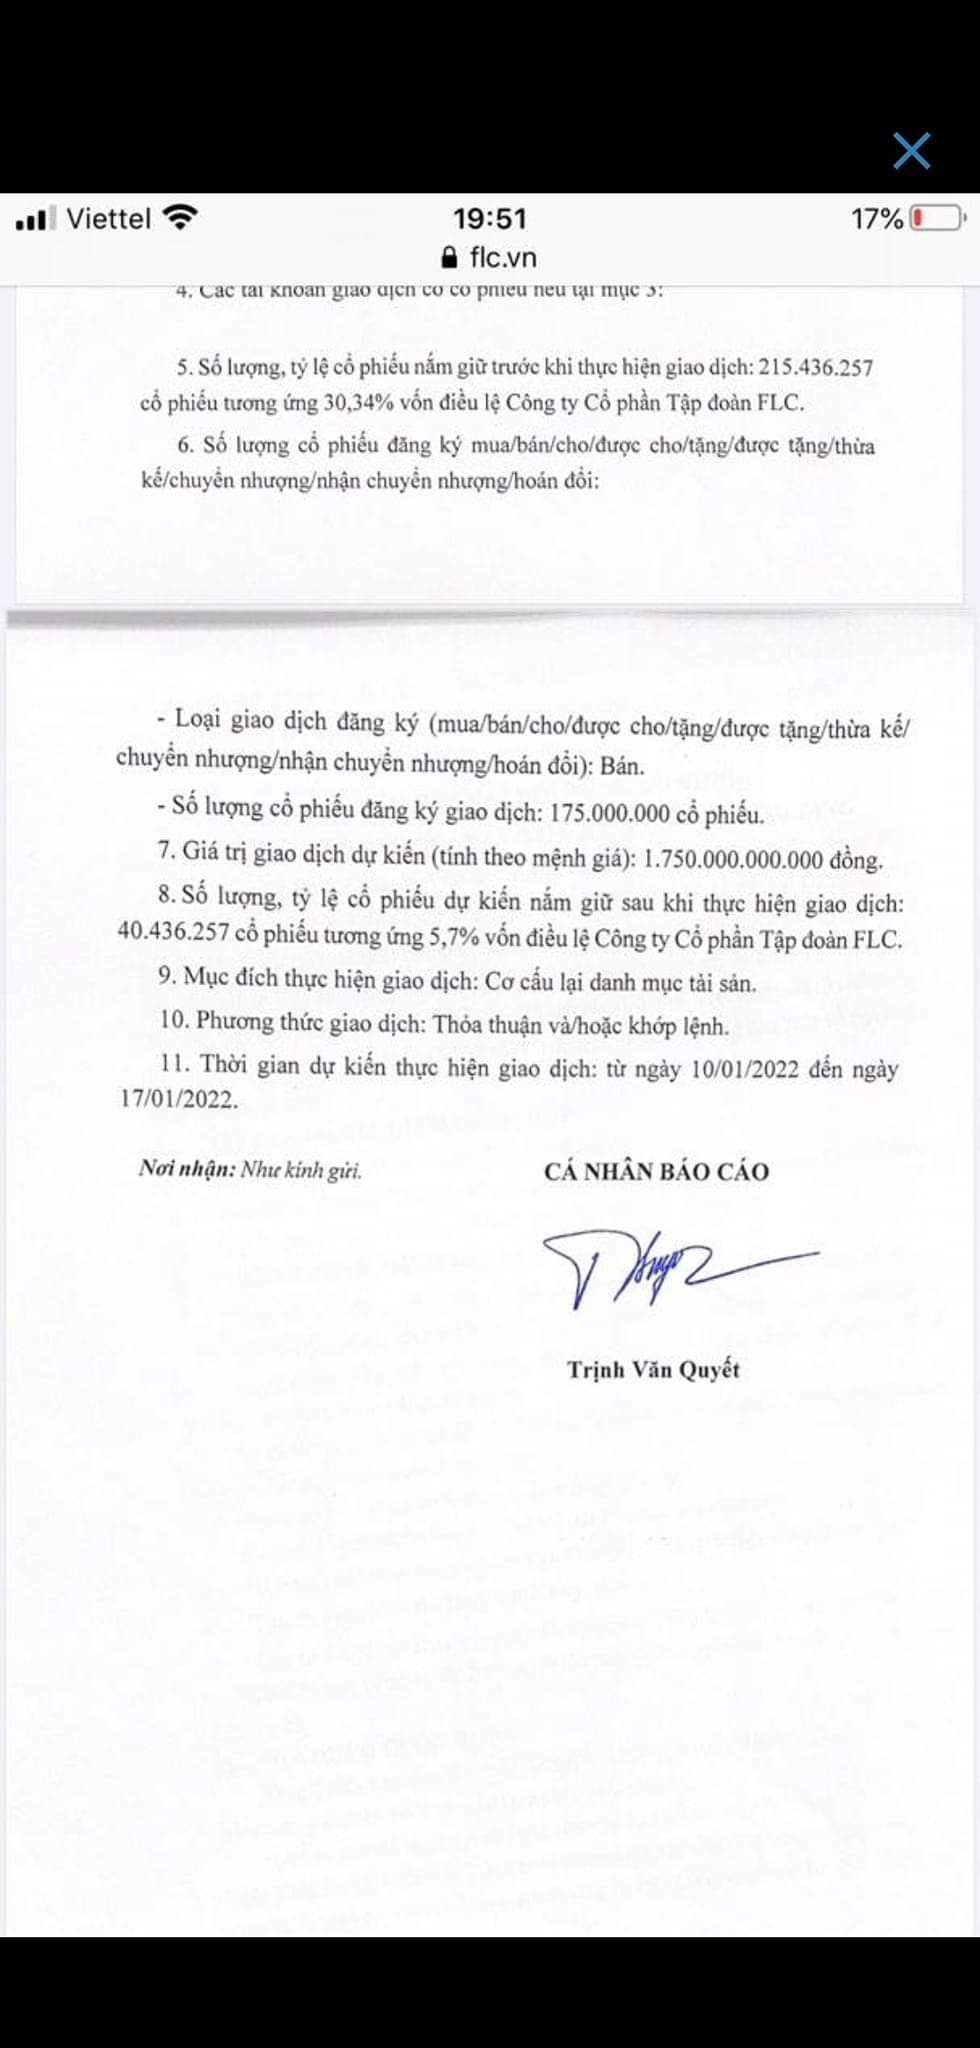 Viettel
19:51
17%
flc.vn
4. Các tài khoản giao dịch có cổ phiếu nêu tại mục 3:
5. Số lượng, tỷ lệ cổ phiếu nắm giữ trước khi thực hiện giao dịch: 215.436.257
cổ phiếu tương ứng 30,34% vốn điều lệ Công ty Cổ phần Tập đoàn FLC.
6. Số lượng cổ phiếu đăng ký mua/bán/cho/được cho/tặng/được tặng/thừa
kế/chuyển nhượng/nhận chuyển nhượng/hoán đổi:
- Loại giao dịch đăng ký (mua/bán/cho/được cho/tặng/được tặng/thừa kế/
chuyển nhượng/nhận chuyển nhượng/hoán đổi): Bán.
- Số lượng cổ phiếu đăng ký giao dịch: 175.000.000 cổ phiếu.
7. Giá trị giao dịch dự kiến (tính theo mệnh giá): 1.750.000.000.000 đồng.
8. Số lượng, tỷ lệ cổ phiếu dự kiến nắm giữ sau khi thực hiện giao dịch:
40.436.257 cổ phiếu tương ứng 5,7% vốn điều lệ Công ty Cổ phần Tập đoàn FLC.
9. Mục đích thực hiện giao dịch: Cơ cấu lại danh mục tài sản.
10. Phương thức giao dịch: Thỏa thuận và/hoặc khớp lệnh.
11. Thời gian dự kiến thực hiện giao dịch: từ ngày 10/01/2022 đến ngày
17/01/2022.
Nơi nhận: Như kính gửi.
CÁ NHÂN BÁO CÁO
Trịnh Văn Quyết